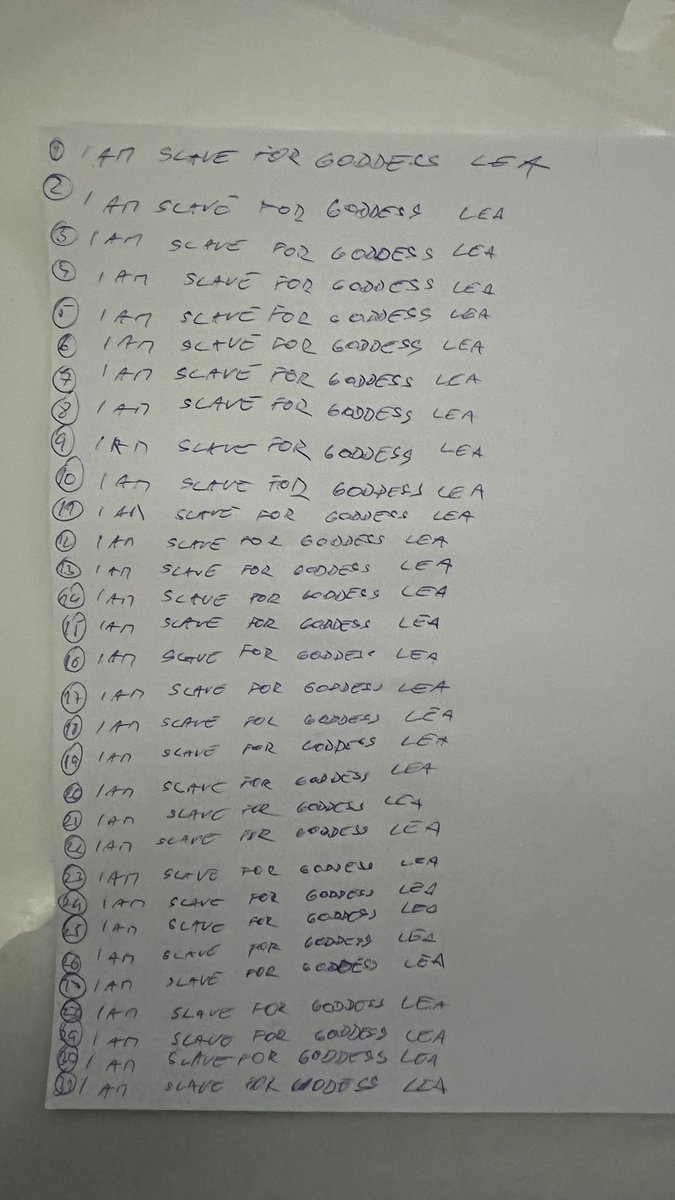 1 I AM SLAVE FOR GODDESS LEA
2 I AM SLAVE FOR GODDESS LEA
3 I AM SLAVE FOR GODDESS LEA
4 I AM SLAVE FOR GODDESS LEA
5 I AM SLAVE FOR GODDESS LEA
6 I AM SLAVE FOR GODDESS LEA
7 I AM SLAVE FOR GODDESS LEA
8 I AM SLAVE FOR GODDESS LEA
9 I AM SLAVE FOR GODDESS LEA
10 I AM SLAVE FOR GODDESS LEA
11 I AM SLAVE FOR GODDESS LEA
12 I AM SLAVE FOR GODDESS LEA
13 I AM SLAVE FOR GODDESS LEA
14 I AM SLAVE FOR GODDESS LEA
15 I AM SLAVE FOR GODDESS LEA
16 I AM SLAVE FOR GODDESS LEA
17 I AM SLAVE FOR GODDESS LEA
18 I AM SLAVE FOR GODDESS LEA
19 I AM SLAVE FOR GODDESS LEA
20 I AM SLAVE FOR GODDESS LEA
21 I AM SLAVE FOR GODDESS LEA
22 I AM SLAVE FOR GODDESS LEA
23 I AM SLAVE FOR GODDESS LEA
24 I AM SLAVE FOR GODDESS LEA
25 I AM SLAVE FOR GODDESS LEA
26 I AM SLAVE FOR GODDESS LEA
I AM SLAVE FOR GODDESS LEA
I AM SLAVE FOR GODDESS LEA
29 I AM SLAVE FOR GODDESS LEA
I AM SLAVE FOR GODDESS LEA
I AM SLAVE FOR GODESS LEA